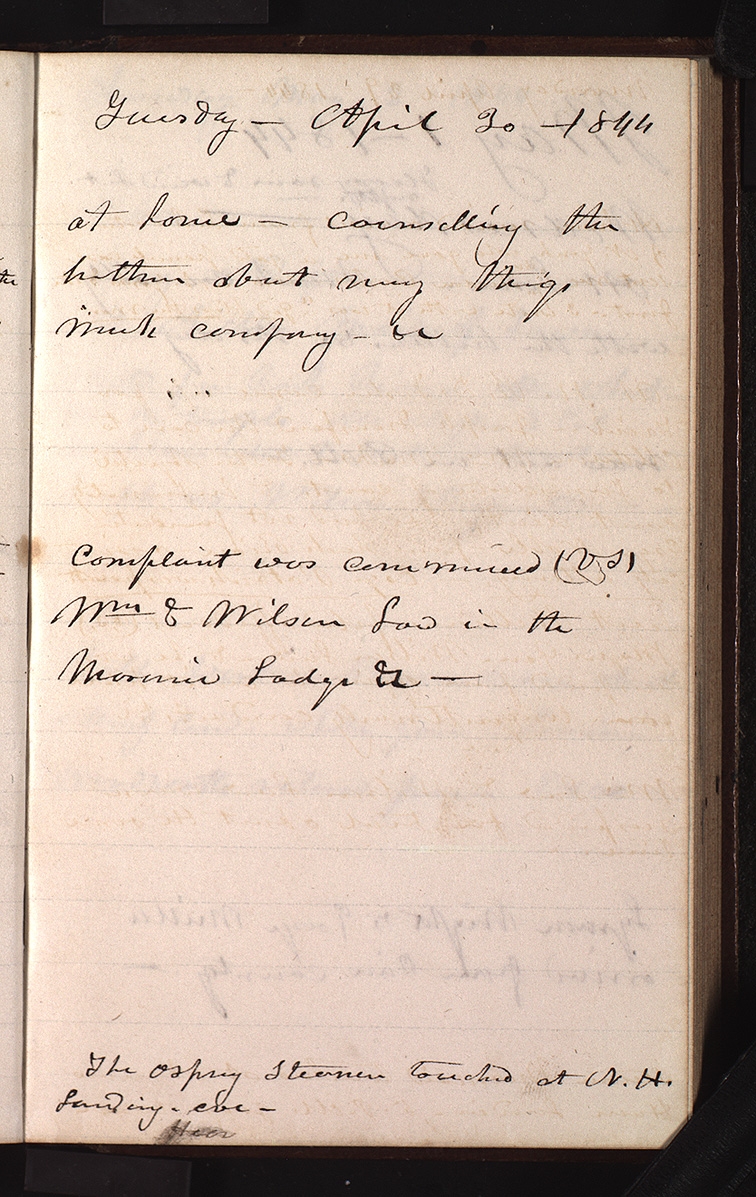 Tuesday — April 30 — 1844
at home — counselling the
brethren about many things
much company — &c
complaint was commenced (VS)
Wm & Wilson Law in the
Masonic Lodge &c —
The Osprey Steamer touched at N. H.
Landing. eve —